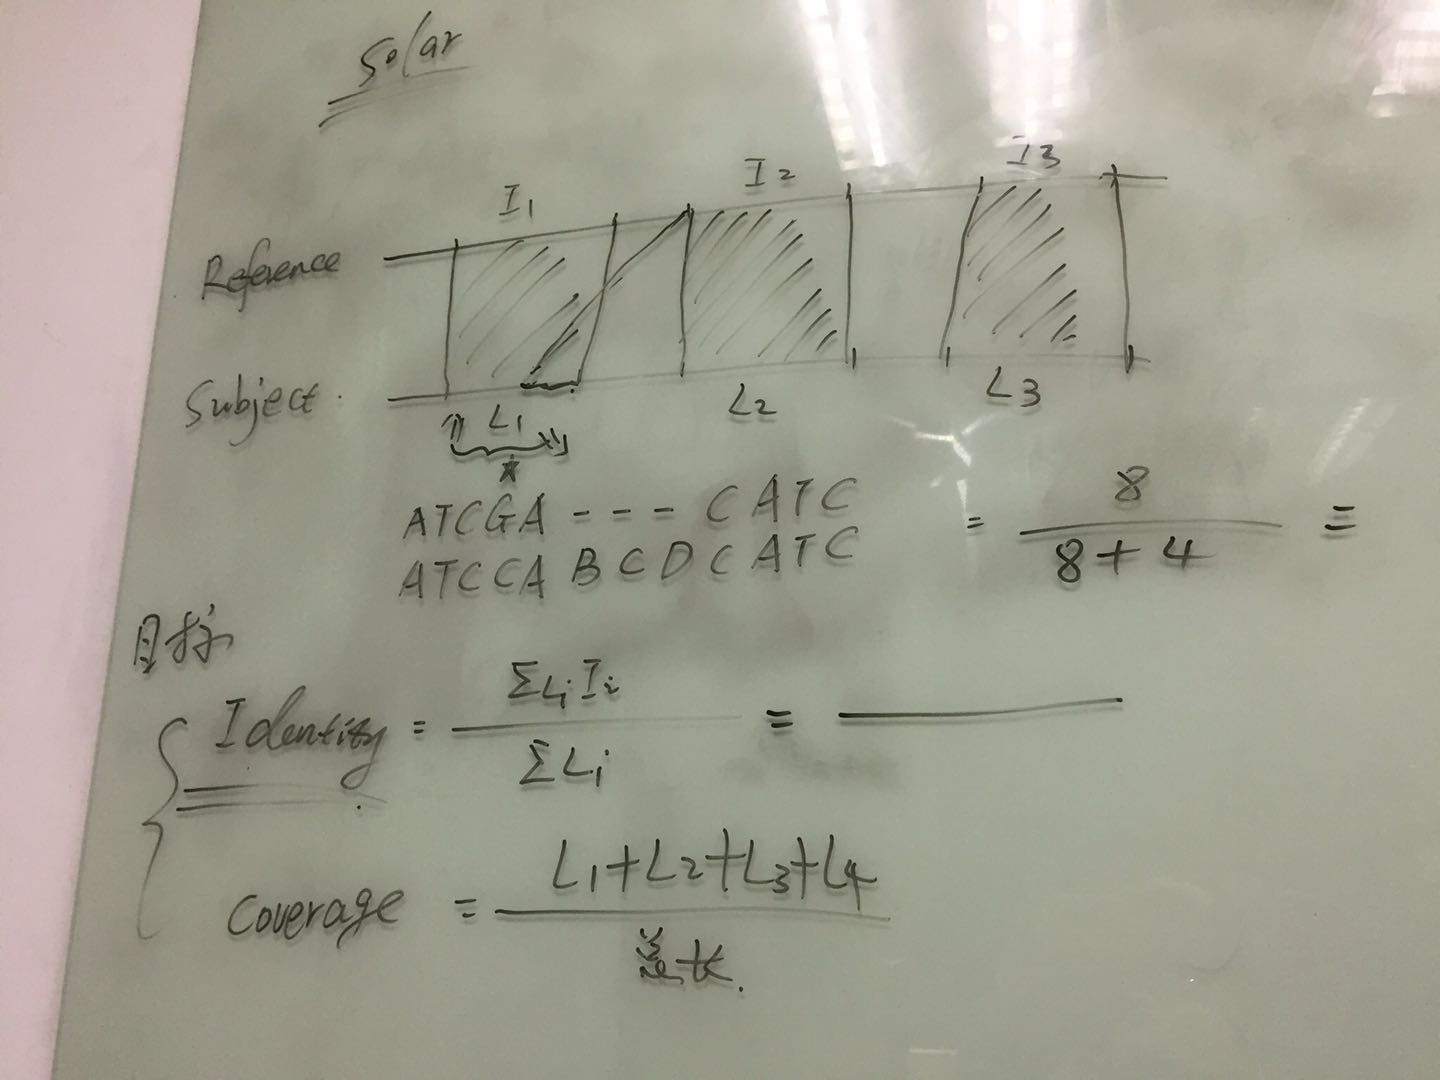 Solar
I1 I2 I3
Reference
Subject.
L1 L2 L3
ATCGA---CATC = 8 / 8+4 =
ATCCABCDCATC
目标
Identity = ΣLiIi / ΣLi =
Coverage = L1+L2+L3+L4 / 总长.